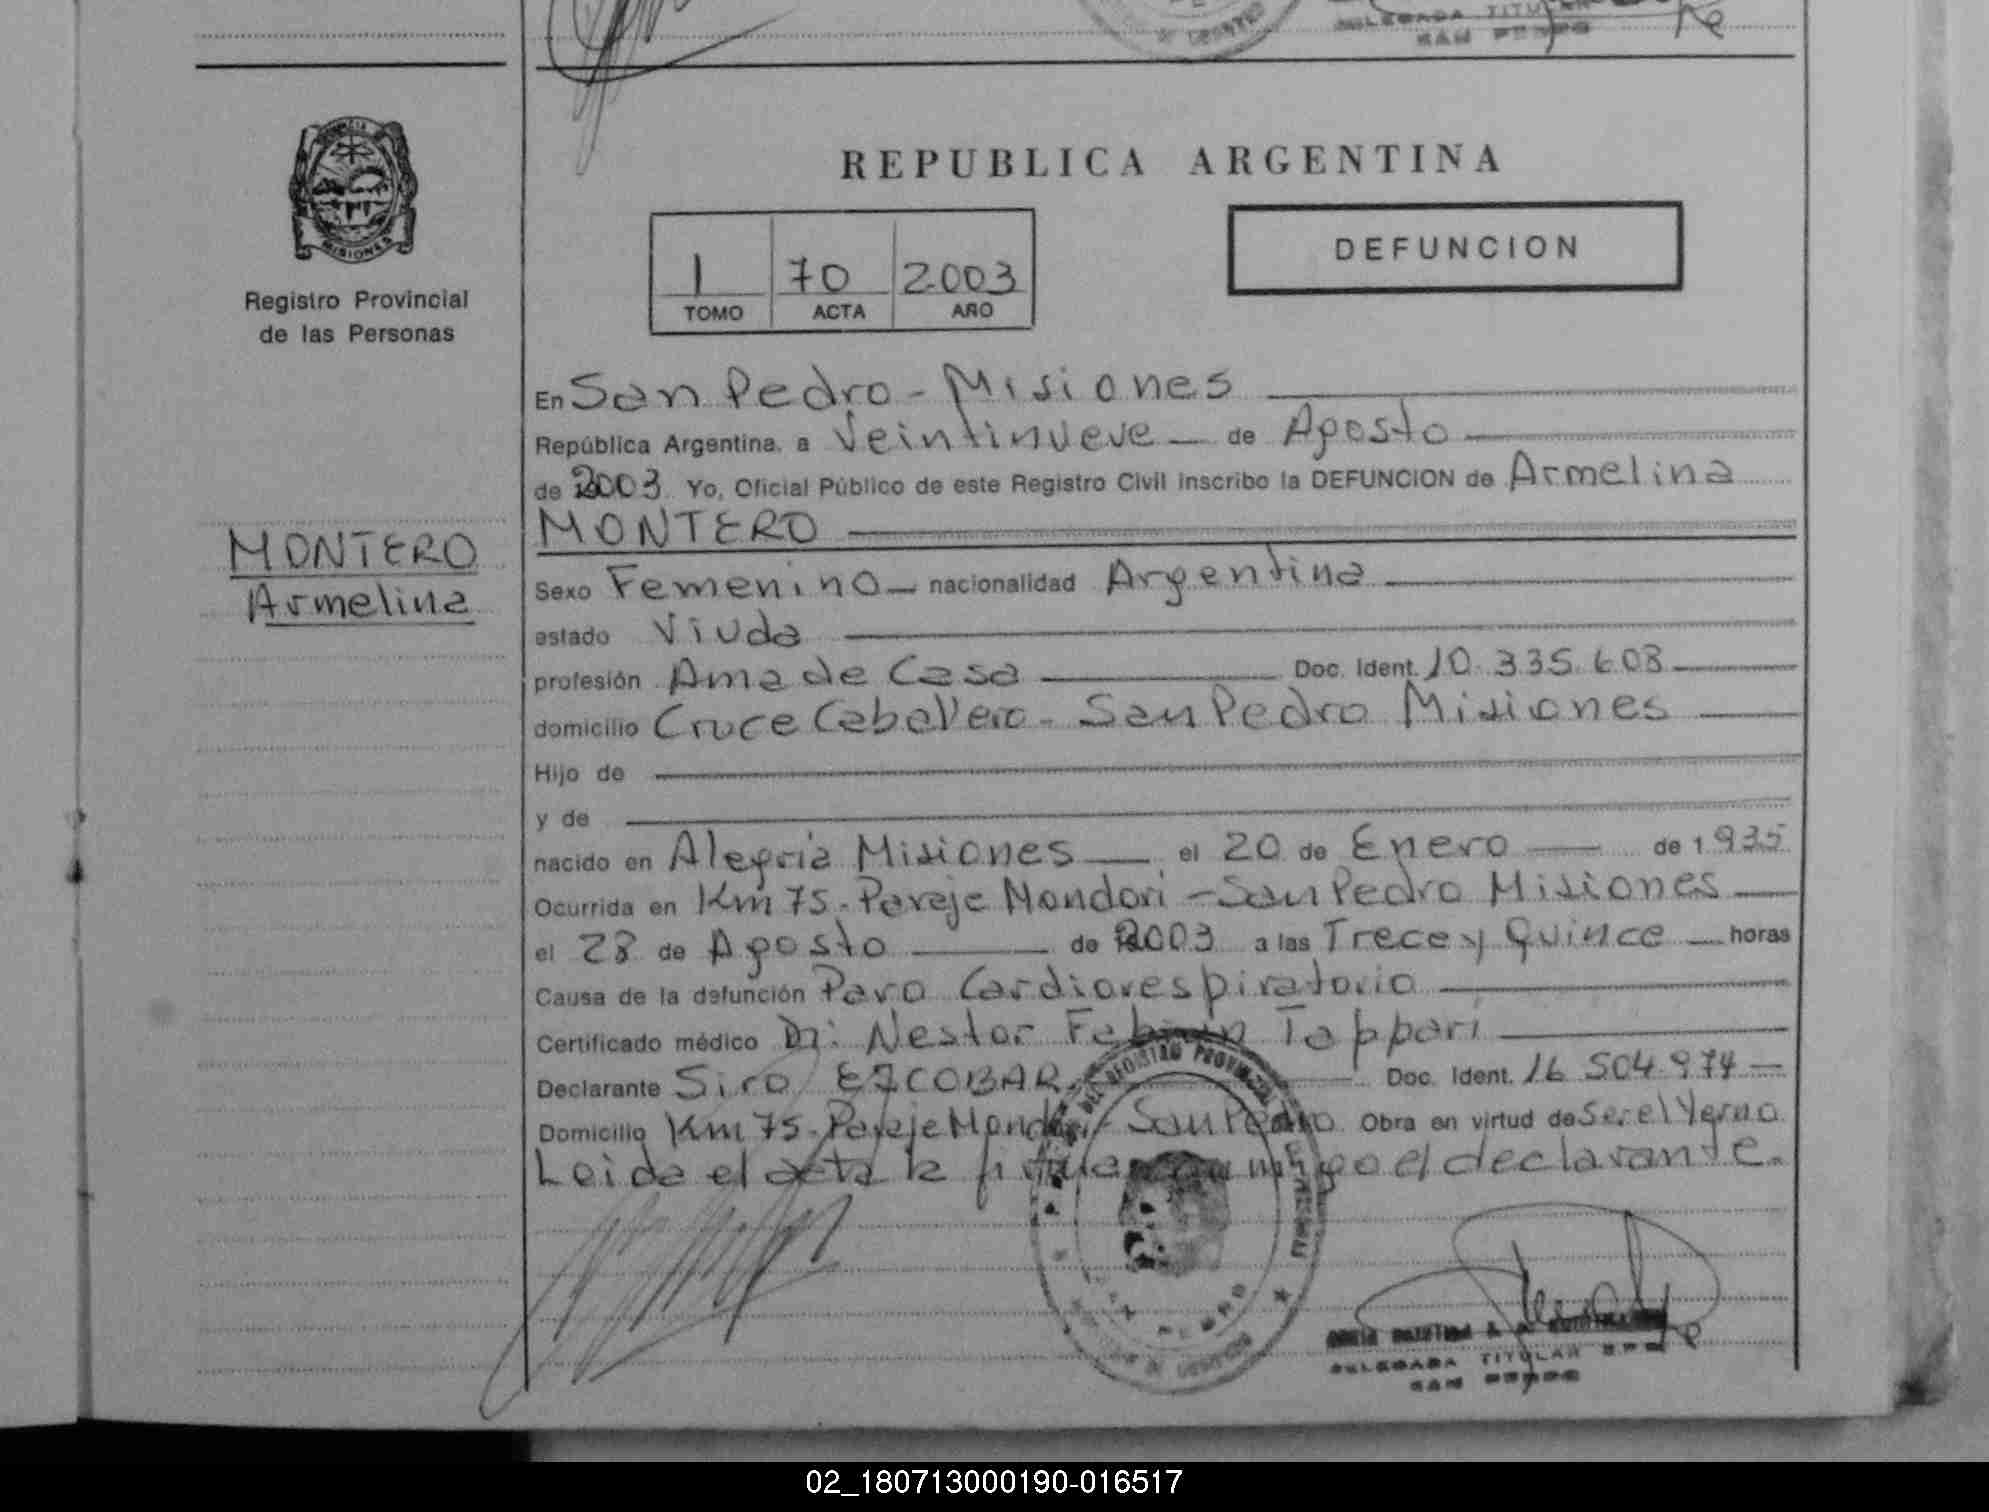 DELEGADA TITULAR
SAN PEDRO
PROVINCIA DE
MISIONES
Registro Provincial
de las Personas
MONTERO
Armelina
REPUBLICA ARGENTINA
1 70 2003
TOMO ACTA AÑO
DEFUNCION
En San Pedro - Misiones
República Argentina, a Veintinueve de Agosto
de 2003 Yo, Oficial Público de este Registro Civil inscribo la DEFUNCION de Armelina
MONTERO
Sexo Femenino nacionalidad Argentina
estado Viuda
profesión Ama de Casa Doc. Ident. 10.335.608
domicilio Cruce Caballero - San Pedro Misiones
Hijo de
y de
nacido en Alegria Misiones el 20 de Enero de 1935
Ocurrida en Km 75 - Paraje Mondori - San Pedro Misiones
el 28 de Agosto de 2003 a las Trece y Quince horas
Causa de la defunción Paro Cardiorespiratorio
Certificado médico Dr: Nestor Fabian Tappari
Declarante Siro ESCOBAR Doc. Ident. 16 504.974
Domicilio Km 75 - Paraje Mondori - San Pedro Obra en virtud de Ser el Yerno
Leida el acta la firman conmigo el declarante.
DEL REGISTRO PROVINCIAL
SAN PEDRO
DELEGADA TITULAR R.P.P.
SAN PEDRO
02_180713000190-016517